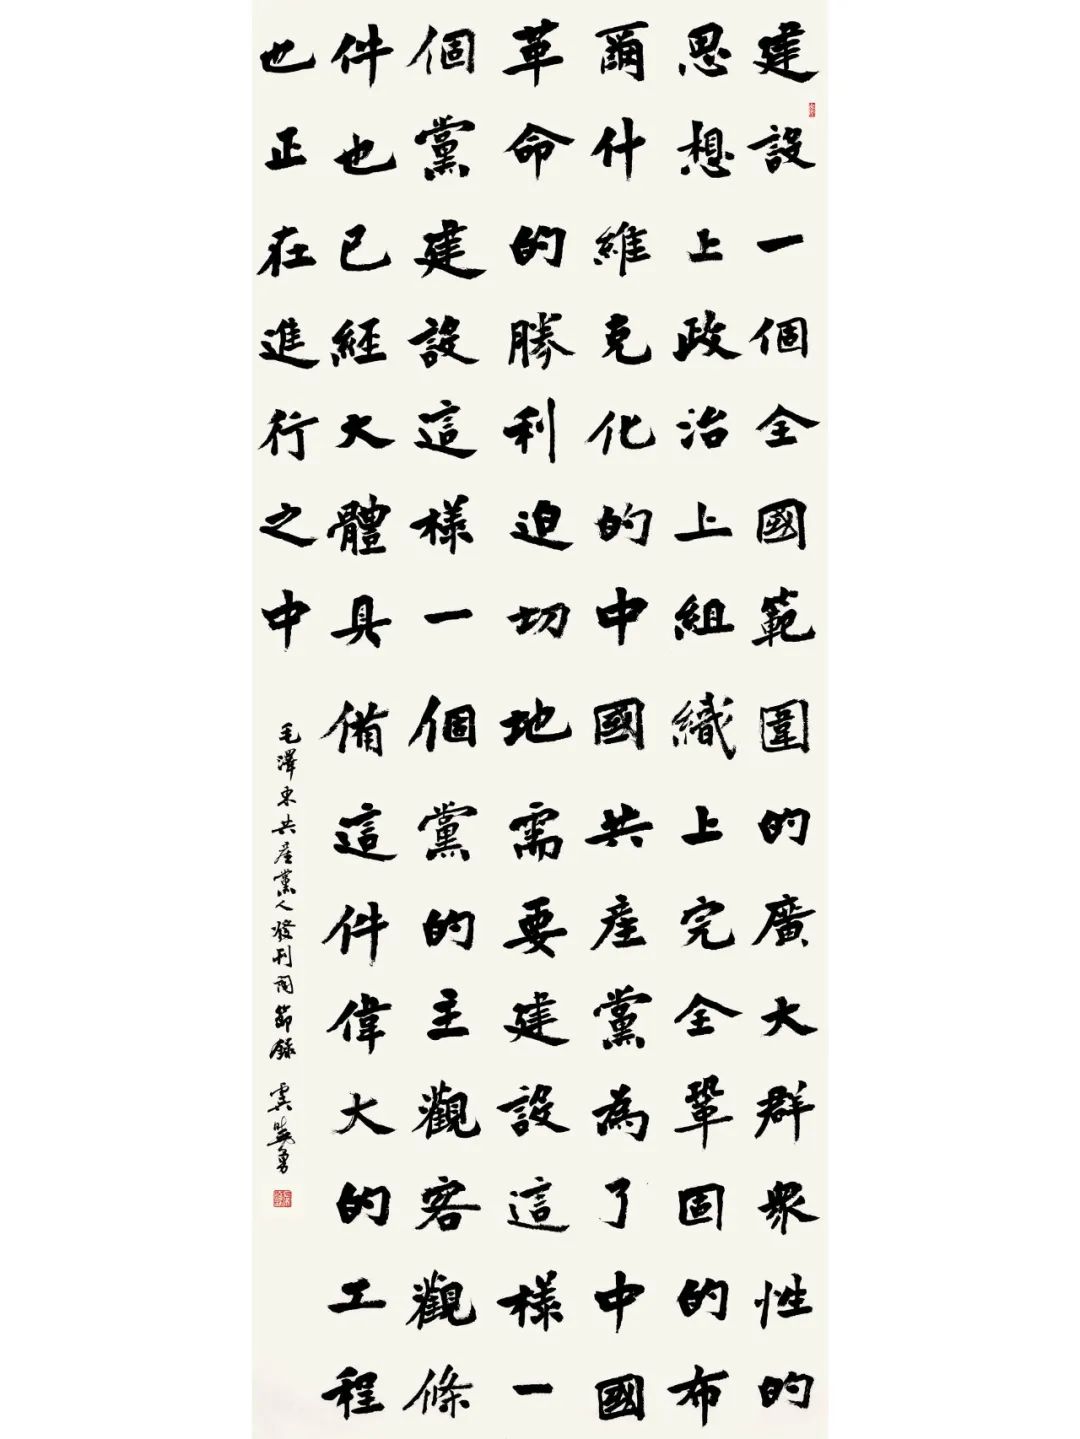 建設一個全國範圍的廣大群衆性的
思想上政治上組織上完全鞏固的布
爾什維克化的中國共産黨為了中國
革命的勝利迫切地需要建設這樣一
個黨建設這樣一個黨的主觀客觀條
件也已經大體具備這件偉大的工程
也正在進行之中
毛澤東共産黨人發刊詞節録 虞曉勇